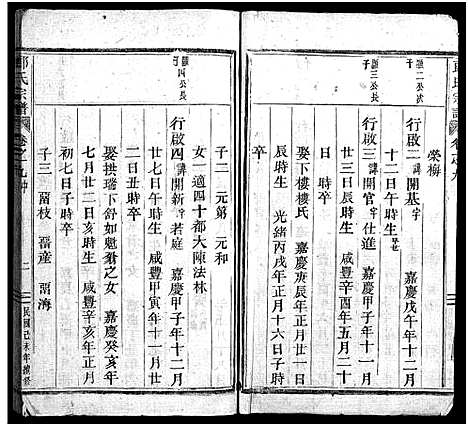 榮梅
行啟二 諱開基 字 嘉慶戊午年十二月
十二日午時生 卒
行啟三 諱開官 字仕進 嘉慶甲子年十一月
三日辰時生 咸豐辛酉年五月
日 時卒
娶下樓樓氏 嘉慶庚辰年正月廿一日
辰時生 光緒丙戌年正月十六日子時
卒
四公長子
子二 元第 元和
女一適四十都大陳法林
行啟四 諱開新 字若庭 嘉慶甲子年十二月
廿七日午時生 咸豐甲寅年十一月廿
二日丑時卒
娶拱瑞下舒如魁獅之女 嘉慶癸亥年
七月廿二日亥時生 咸豐辛亥年正月
初七日子時卒
子三 啚枝 啚產 啚海
氏宗譜
卷之九
二
民國己未年續修